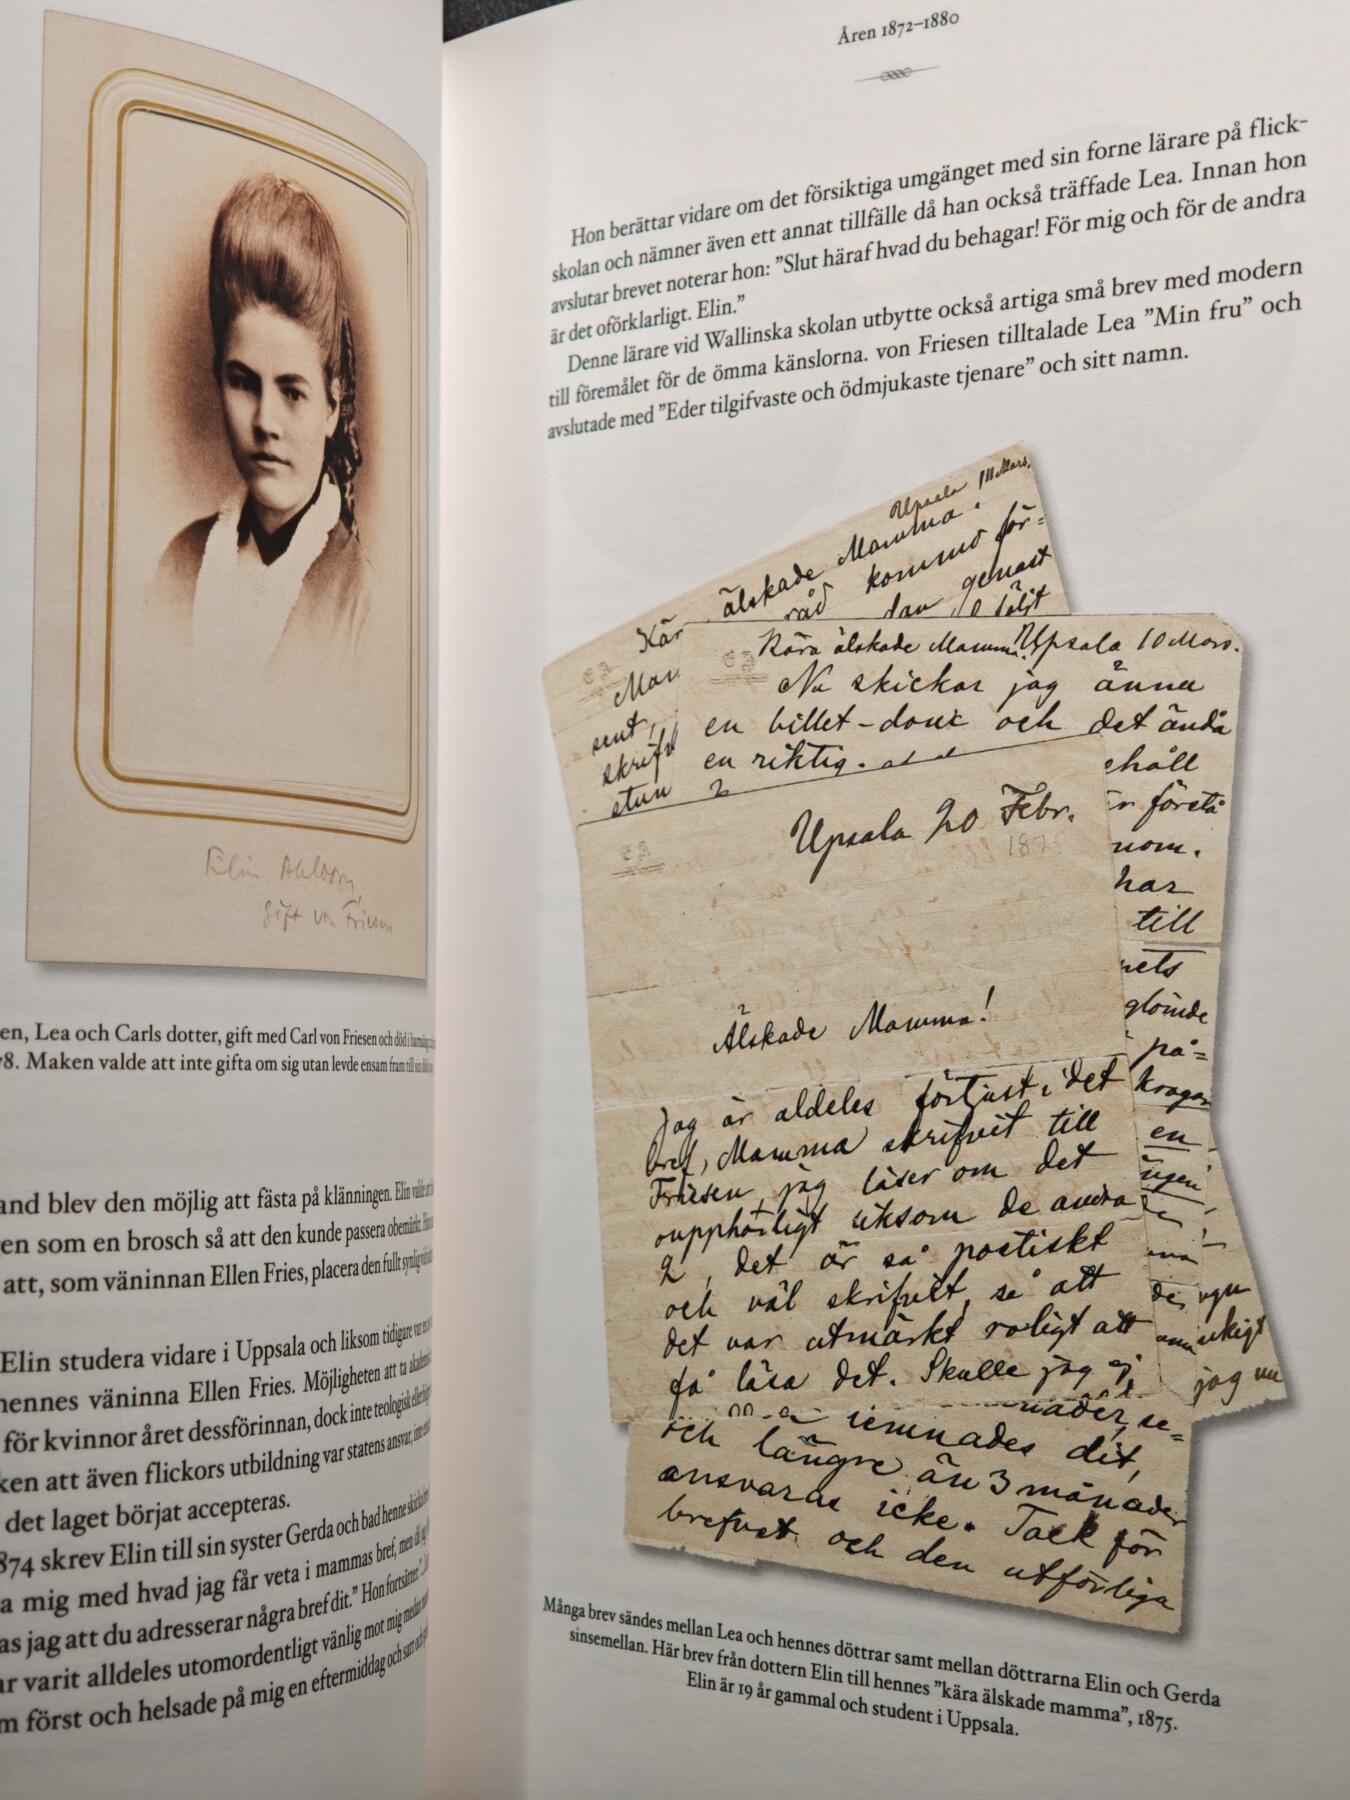 Elin Ahlborn,
gift von Friesen
en, Lea och Carls dotter, gift med Carl von Friesen och död i
78. Maken valde att inte gifta om sig utan levde ensam fram till
and blev den möjlig att fästa på klänningen. Elin valde
en som en brosch så att den kunde passera obemärkt.
att, som väninnan Ellen Fries, placera den fullt synlig
Elin studera vidare i Uppsala och liksom tidigare var
hennes väninna Ellen Fries. Möjligheten att ta
för kvinnor året dessförinnan, dock inte teologisk eller
ken att även flickors utbildning var statens ansvar, inte
det laget börjat accepteras.
874 skrev Elin till sin syster Gerda och bad henne
a mig med hvad jag får veta i mammas bref, men
as jag att du adresserar några bref dit.” Hon fortsätter:
ar varit alldeles utomordentligt vänlig mot mig
m först och helsade på mig en eftermiddag och satt
Åren 1872–1880
Hon berättar vidare om det försiktiga umgänget med sin forne lärare på flick-
skolan och nämner även ett annat tillfälle då han också träffade Lea. Innan hon
avslutar brevet noterar hon: ”Slut häraf hvad du behagar! För mig och för de andra
är det oförklarligt. Elin.”
Denne lärare vid Wallinska skolan utbytte också artiga små brev med modern
till föremålet för de ömma känslorna. von Friesen tilltalade Lea ”Min fru” och
avslutade med ”Eder tilgifvaste och ödmjukaste tjenare” och sitt namn.
Upsala Mars.
älskade Mamma!
råd kommo för-
genast
Kär
Mam
sent,
skrif
stun
Kära älskade Mamma! Upsala 10 Mars.
Nu skickar jag ännu
en billet-doux och det ända
en riktig.
ehåll
förstå
nom.
har
till
Upsala 20 Febr.
1875
Älskade Mamma!
Jag är aldeles förtjust i det
bref, Mamma skrifvit till
Friesen, jag läser om det
oupphörligt liksom de andra
2, det är så poetiskt
och väl skrifvit, så att
det var utmärkt roligt att
få läsa det. Skulle jag ej
nets
glömde
på=
kragar
en
jag nu
lemnades dit,
och längre än 3 månader
ansvaras icke. Tack för
brefvet och den utförliga
Många brev sändes mellan Lea och hennes döttrar samt mellan döttrarna Elin och Gerda
sinsemellan. Här brev från dottern Elin till hennes ”kära älskade mamma”, 1875.
Elin är 19 år gammal och student i Uppsala.